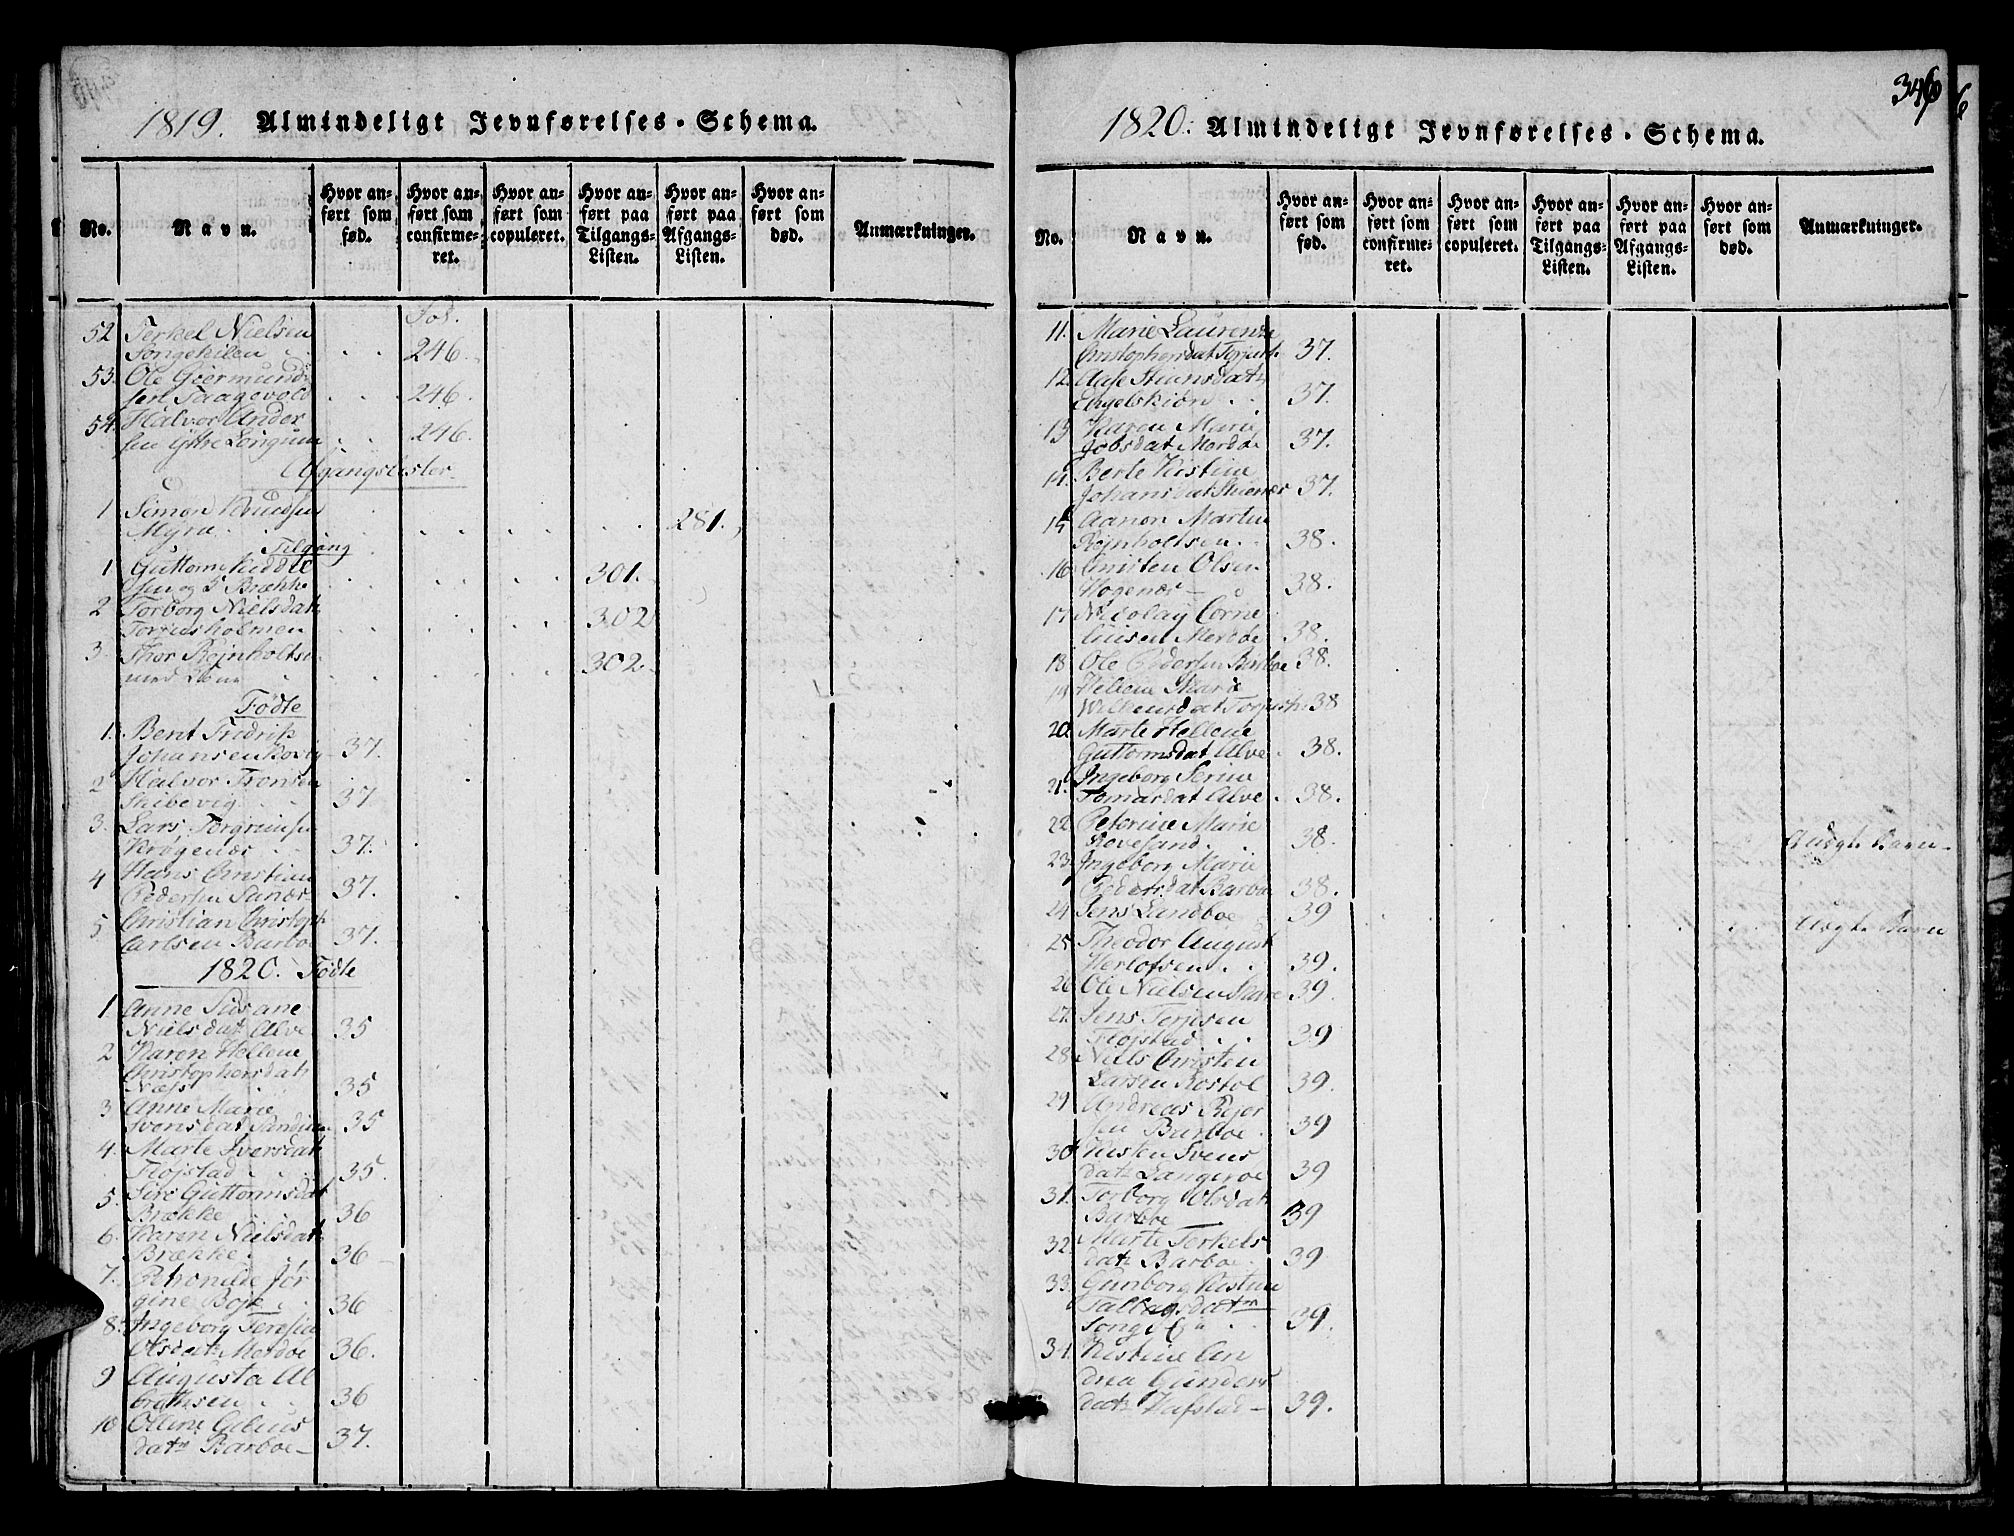 1819. Almindeligt Jevnførelses-Schema.
No.
Navn.
Hvor an-
ført som
fød.
Hvor an-
ført som
confirme-
ret.
Hvor an-
ført som
copuleret.
Hvor an-
ført paa
Tilgangs-
Listen.
Hvor an-
ført paa
Afgangs-
Listen.
Hvor an-
ført som
død.
Anmærkninger.
Fol.
52 Terkel Nielsen
Songekilen . . . 246.
53. Ole Giermund
sen Saagevold . . 246.
54. Halvor Ander
sen Ytre Longum . . 246.
Afgangslister
1 Simon Knudsen
Myra . . . . . 281.
Tilgang
1 Guttorm Keddel
sen og 5 Brække . . . . 301.
2 Torborg Nielsdatr
Torjusholmen . . . . 302
3 Thor Rejnholtsen
med Kone . . . . 302.
Fødte
1. Bent Fridrik
Johansen Kovig 37.
2 Halvor Tronsen
Skibevig . . 37.
3. Lars Torgrimsen
Krøgenæs . . 37.
4 Hans Christian
Pedersen Sanæs 37.
5 Christian Christoph
Carlsen Barboe 37.
1820. Fødte
1. Anne Susane
Nielsdat Alve 35
2 Karen Hellene
Christophersdatr
Næss . . 35
3 Anne Marie
Svensdat Sandum 35
4. Marte Iversdatr
Flojstad . . 35.
5. Siri Guttormsdat
Brække . . 36
6. Karen Nielsdatr
Brække . . 36
7. Rhonilde Jør
gine Boje . . 36
8. Ingeborg Teresia
Olsdatr Merdøe 36.
9 Augusta Al
brethsen . . 36
10 Olline Gelius
datr Barboe 37.
346
1820. Almindeligt Jevnførelses-Schema.
No.
Navn.
Hvor an-
ført som
fød.
Hvor an-
ført som
confirme-
ret.
Hvor an-
ført som
copuleret.
Hvor an-
ført paa
Tilgangs-
Listen.
Hvor an-
ført paa
Afgangs-
Listen.
Hvor an-
ført som
død.
Anmærkninger.
11. Marie Laurense
Christophersdat Torjush. 37.
12. Aase Stiansdatr
Engelskiøn . . 37.
13 Karen Marie
Jobsdat Merdøe 37.
14. Berte Kistine
Johansdat Skienæs 37.
15 Aanon Martin
Rejnholtsen . . 38.
16 Christen Olsen
Hogenæs 38.
17 Nicolay Corne
liusen Merdøe 38.
18 Ole Pedersen Barboe 38.
19 Hellene Marie
Wilkensdat Torjush. 38
20. Marte Hellene
Guttormsdat Alve . 38.
21. Ingeborg Serine
Tomasdat Alve . 38.
22 Peterine Marie
Revesand . . 38. Uægte Barn
23. Ingeborg Marie
Pedersdat Barboe 38.
24 Jens Sandboe 39 . . . . . . Uægte Barn
25. Theodor August
Herlofsen . . 39.
26 Ole Nielsen Skare 39.
27. Jens Terjesen
Flojstad . . 39
28. Niels Christen
Larsen Rostøl 39.
29 Andreas Rejer
sen Barboe . 39
30. Kisten Svens
datr Langevoe 39
31. Torborg Olsdatr
Barboe 39
32. Marte Terkels
datr Barboe . 39
33. Gunborg Kistine
Tallagsdatr
Songe . . 39.
34. Kistine An
drea Gunders
datr Hafstad 39.